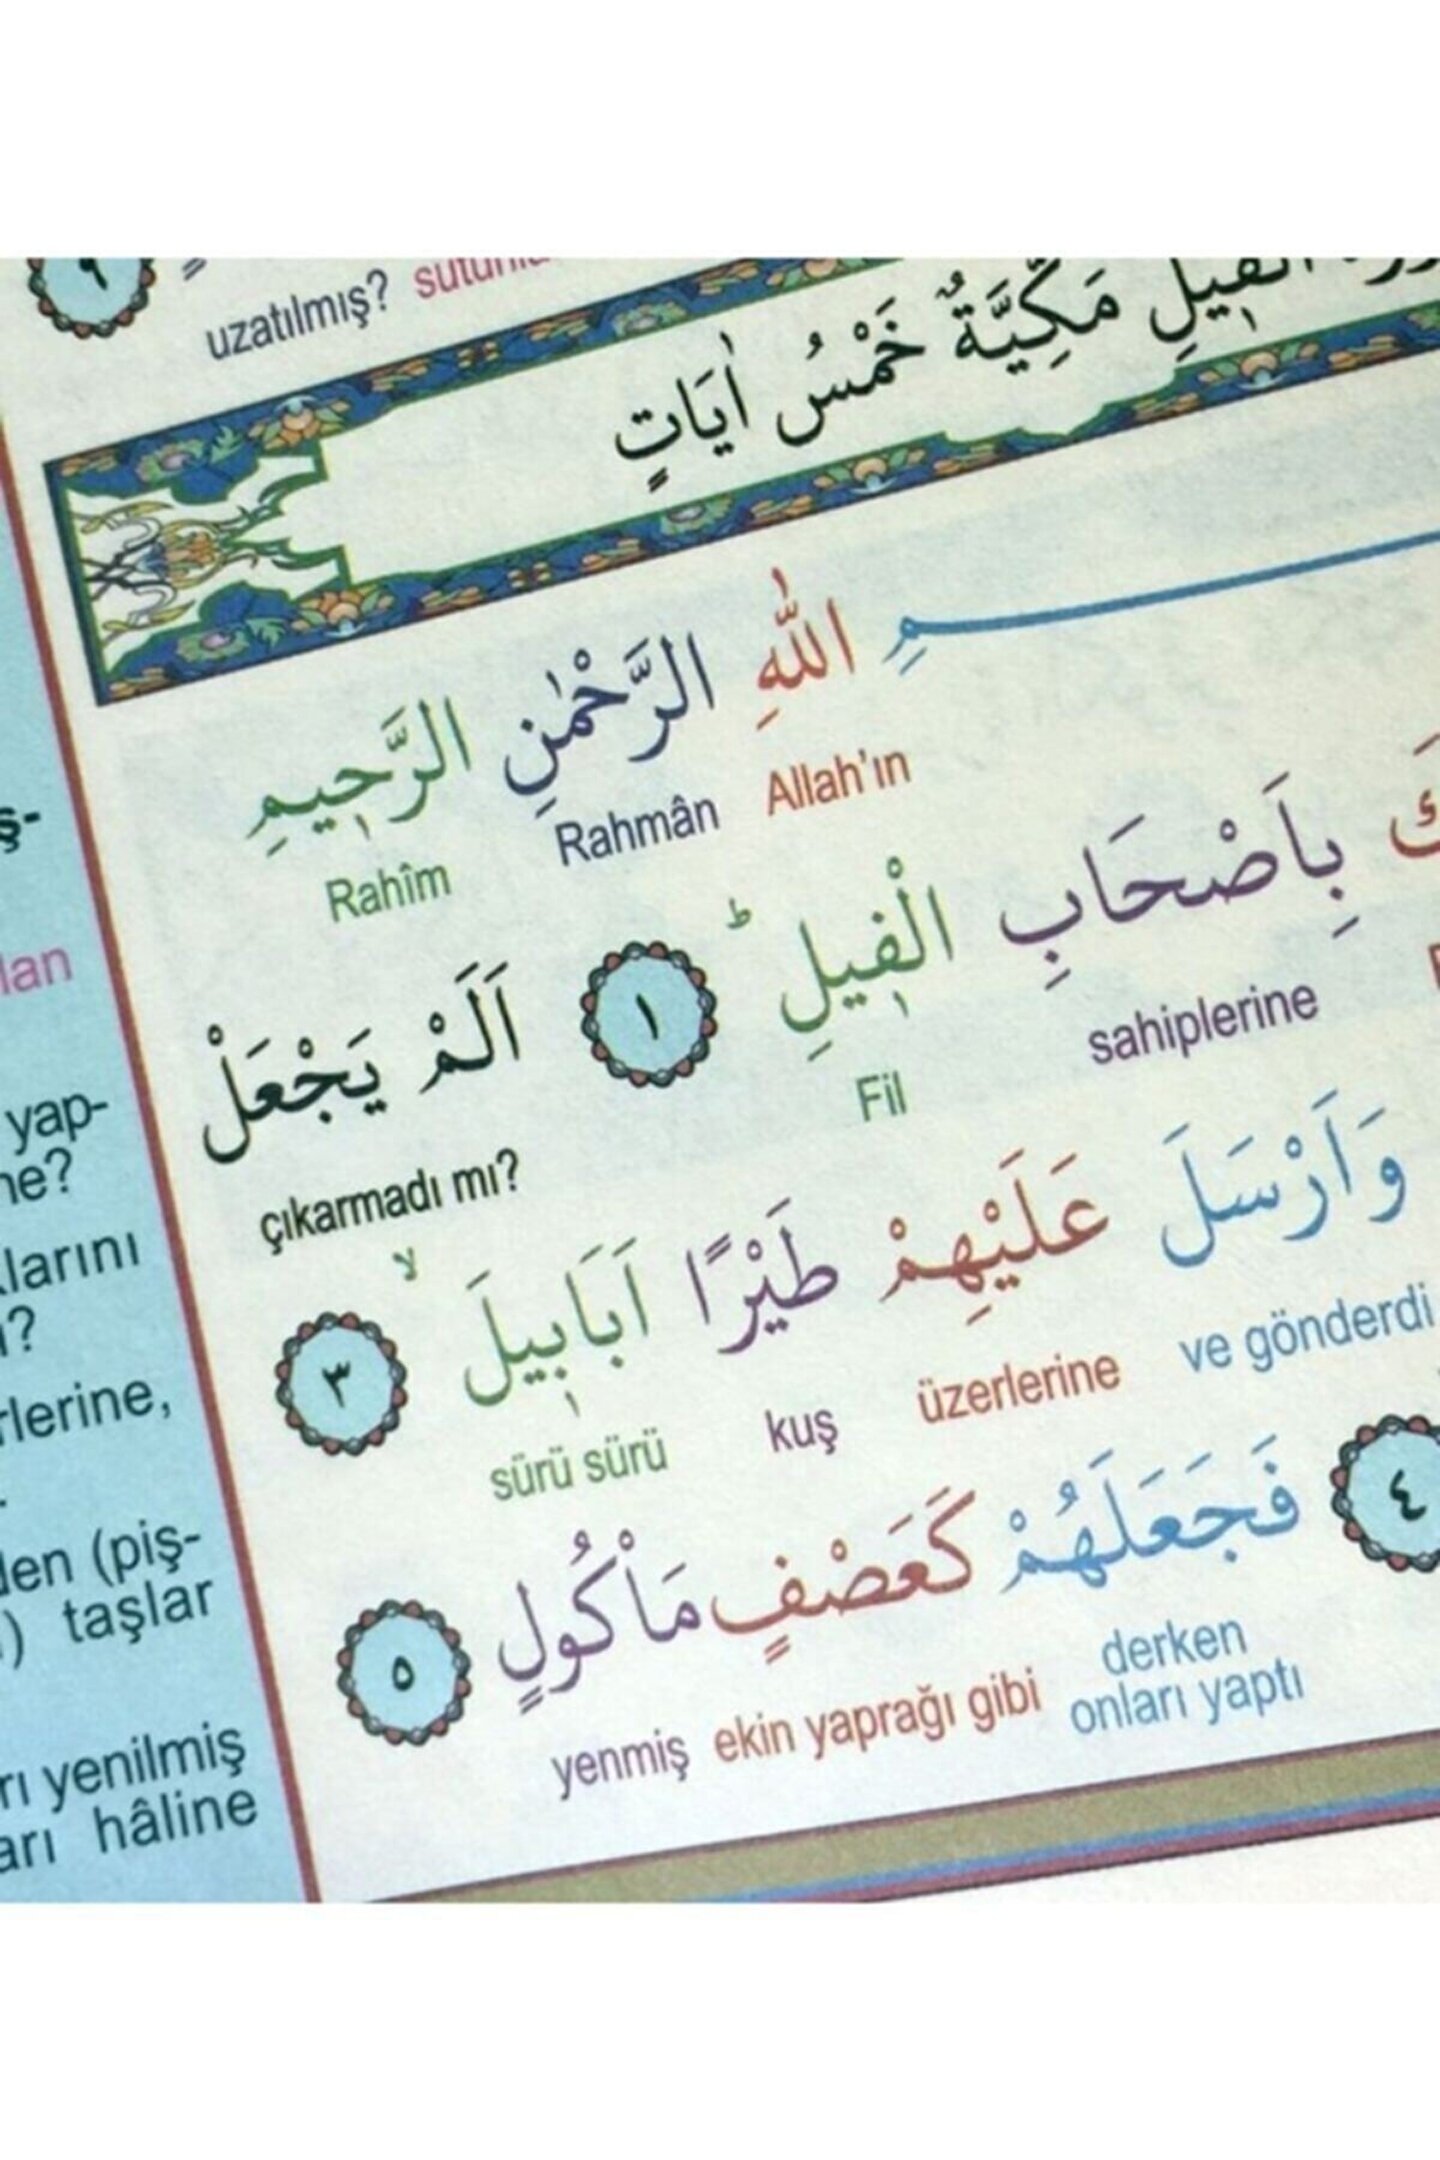 ٩
uzatılmış?
الْف۪يلِ مَكِّيَّةٌ خَمْسُ اٰيَاتٍ
اللّٰهِ الرَّحْمٰنِ الرَّح۪يمِ
Allah'ın Rahmân Rahîm
بِاَصْحَابِ الْف۪يلِۜ ١ اَلَمْ يَجْعَلْ
sahiplerine Fil çıkarmadı mı?
وَاَرْسَلَ عَلَيْهِمْ طَيْرًا اَبَاب۪يلَۙ ٣
ve gönderdi üzerlerine kuş sürü sürü
٤ فَجَعَلَهُمْ كَعَصْفٍ مَأْكُولٍ ٥
derken onları yaptı ekin yaprağı gibi yenmiş
ş-
lan
yap-
ne?
klarını
rlerine,
den (piş-
taşlar
rı yenilmiş
arı hâline